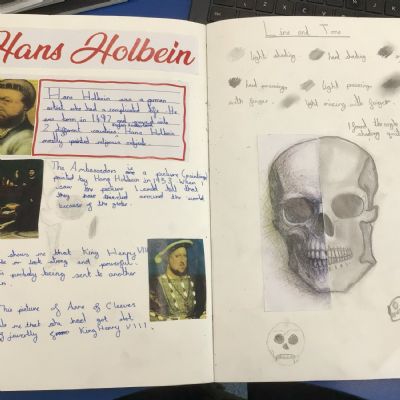 Hans Holbein
Hans Holbein was a german
artist who had a complicated life. He
was born in 1497 and
2 different countries. Hans Holbein
mostly painted religious subjects
The Ambassadors is a picture (painting)
painted by Hans Holbein in 1533. When I
saw the picture I could tell that
they have traveled around the world
because of the globe.
shows me that King Henry VIII
look strong and powerful.
probably being sent to another
This picture of Anne of Cleeves
me that she
King Henry VIII.
Line and Tone
light shading
hard shading
hard pressing
light pressing
with finger.
light mixing with finger.
I found the
shading